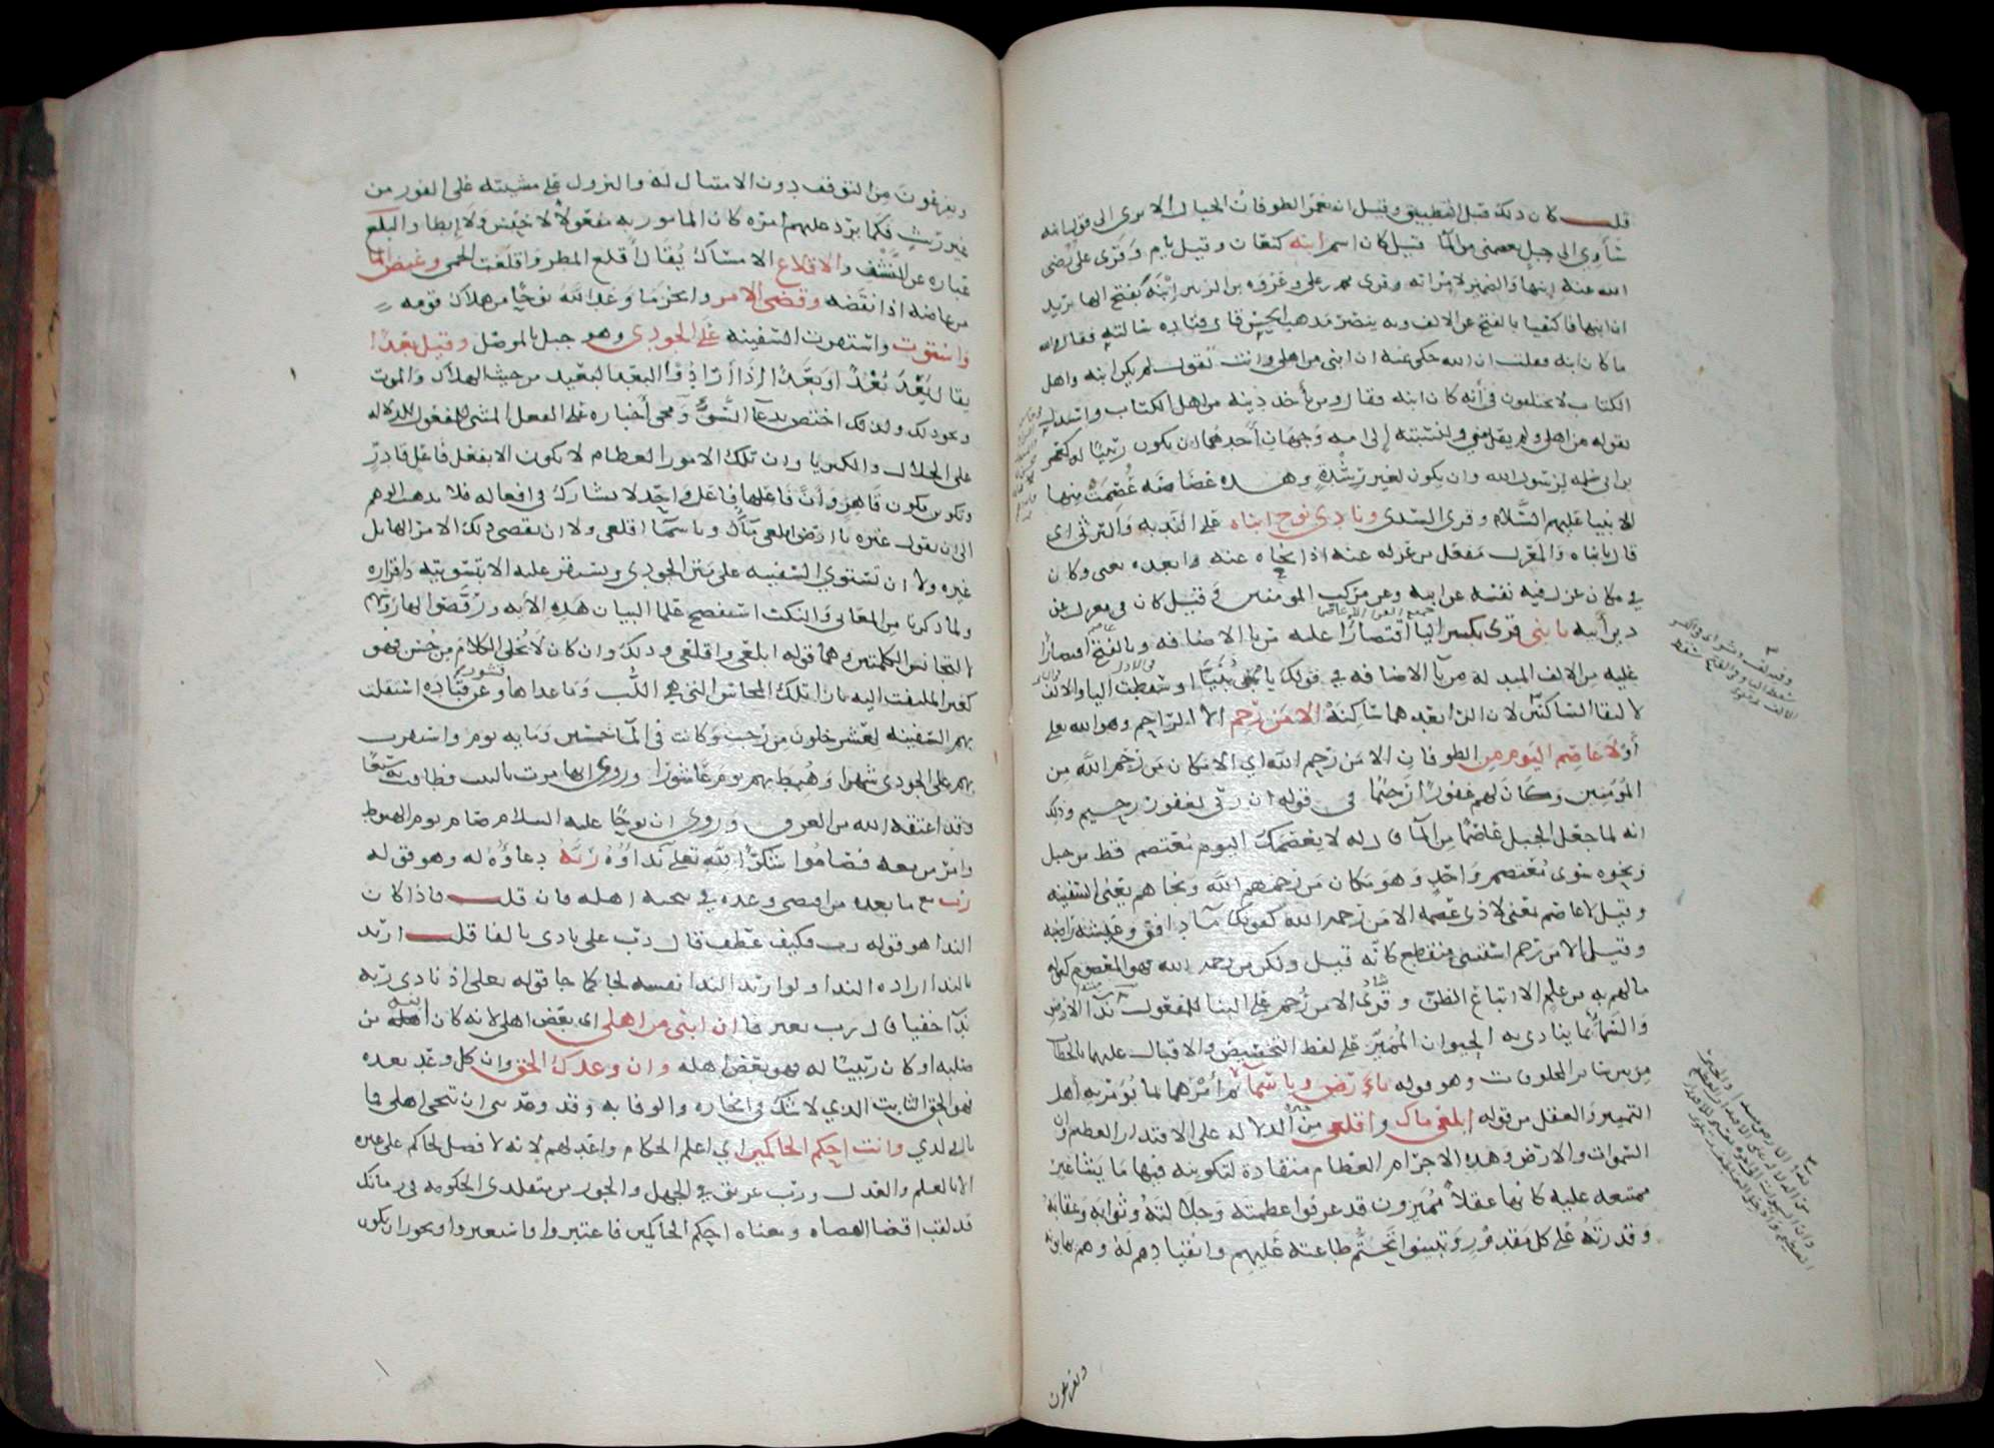 قلت كان ذلك قبل التطبيق وقيل ان يعم الطوفان الجبال الا ترى الى قول ابنه
سآوي الى جبل يعصمني من الما قيل كان اسم ابنه كنعان وقيل يام وقرى علي رضي
الله عنه ابنها والضمير لامراته وقرى محمد بن علي وعروة بن الزبير ابنه بفتح الها يريد
ان ابنها فاكتفيا بالفتح عن الالف وبه ينصر مذهب الحسن قال قتاده سالته فقال والله
ما كان ابنه فقلت ان الله حكى عنه ان ابني من اهلي وانت تقول لم يكن ابنه واهل
الكتاب لا يختلفون في أنه كان ابنه فقال ومن يأخذ دينه من اهل الكتاب واستدل
بقوله من اهلي ولم يقل مني ولنسبته إلى امه وجهان أحدهما ان يكون ربيبا له كعمر
بن ابي سلمه لرسول الله وان يكون لغير رشدة وهذه غضاضه عصمت منها
الانبيا عليهم السلام وقرى السدى ونادى نوح ابناه على الندبه والترثى اى
قال يا ابناه والمعزل مفعل من عزله عنه اذا نحاه عنه وابعده يعنى وكان
في مكان عزل فيه نفسه عن ابيه وعن مركب المومنين وقيل كان في معزل عن
دين أبيه يا بني قرى بكسر اليا اقتصارا عليه من يا الاضافه وبالفتح اقتصارا
عليه من الالف المبدله من يآ الاضافه في قولك يا بنيا او سقطت اليا والالف
لالتقا الساكنين لان الرا بعدهما ساكنة الا من رحم الا الراحم وهو الله تعلى
أو لا عاصم اليوم من الطوفان الا من رحم الله اي الا مكان من رحم الله من
المؤمنين وكان لهم غفورا رحيما في قوله ان ربي لغفور رحيم وذلك
انه لما جعل الجبل عاصما من المآ قال له لا يعصمك اليوم معتصم قط من جبل
ونحوه سوى معتصم واحد وهو مكان من رحمهم الله ونجاهم يعنى السفينه
وقيل لا عاصم بمعنى لا ذى عصمه الا من رحمه الله كقولك مآ دافق وعيشة راضيه
وقيل الا من رحم استثنى منقطع كانه قيل ولكن من رحمه الله فهو المعصوم كقوله
مالهم به من علم الا اتباع الظن وقرى الا من رحم على البنا للمفعول ندآ الارض
والسما بما ينادى به الحيوان المميز على لفظ التخصيص والاقبال عليهما بالخطاب
من بين سائر المخلوقات وهو قوله يا ارض ويا سما ثم أمرهما بما يؤمر به أهل
التمييز والعقل من قوله ابلعي ماك واقلعي من الدلاله على الاقتدار العظيم وان
السموات والارض وهذه الاجرام العظام منقادة لتكوينه فيها ما يشا غير
ممتنعه عليه كانها عقلا مميزون قد عرفوا عظمته وجلالته وثوابه وعقابه
وقدرته على كل مقدور وتبينوا تحتم طاعته عليهم وانقيادهم له وهم يهابونه
ويفزعون
ويفزعون من التوقف دون الامتثال له والنزول على مشيته على الفور من
غير ريث فكما يرد عليهم امره كان المامور به مفعولا لا حبس ولا إبطا والبلع
عباره عن النشف والاقلاع الامساك يقال أقلع المطر واقلعت الحمى وغيض الما
من غاضه اذا نقصه وقضى الامر وانجز ما وعد الله نوحا من هلاك قومه
واستوت واستقرت السفينه على الجودي وهو جبل بالموصل وقيل بعدا
يقال بعد بعدا وبعدا اذا أرادوا البعد البعيد من حيث الهلاك والموت
ونحو ذلك ولذلك اختص بدعآ السوء ومجى أخباره على الفعل المبنى للمفعول للدلاله
على الجلال والكبريا وان تلك الامور العظام لا تكون الا بفعل فاعل قادر
وتكوين مكون قاهر وأن فاعلها فاعل واحد لا يشارك في افعاله فلا يذهب الوهم
الى ان يقول غيره يا ارض ابلعي ماك ويا سما اقلعي ولا ان يقضى ذلك الامر الهايل
غيره ولا ان تستوي السفينه على متن الجودي وتستقر عليه الا بتسويته واقراره
ولما ذكرنا من المعاني والنكت استفصح علما البيان هذه الآيه ورقصوا لها روسهم
لا لتجانس الكلمتين وهما قوله ابلعي واقلعي وذلك وان كان لا يخلى الكلام من حسن فهو
كغير الملتفت اليه بازا تلك المحاسن التي هي اللب وما عداها قشور وعن قتاده استقلت
بهم السفينه لعشر خلون من رجب وكانت في المآ خمسين ومايه يوم واستقرت
بهم على الجودى شهرا وهبط بهم يوم عاشورا وروى انها مرت بالبيت فطافت به سبعا
وقد اعتقه الله من الغرق وروى ان نوحا عليه السلام صام يوم الهبوط
وامر من معه فصاموا شكرا لله تعلى نداؤه ربه دعاؤه له وهو قوله
رب مع ما بعده من اقتضى وعده في تنجيه اهله فان قلت فاذا كان
الندا هو قوله رب فكيف عطف قال رب على نادى بالفا قلت اريد
بالندا اراده الندا ولو اريد الندا نفسه لجا كما جا قوله تعلى اذ نادى ربه
ندآ خفيا قال رب بغير فا ان ابني من اهلي اى بعض اهلي لانه كان ابنه من
صلبه او كان ربيبا له فهو بعض اهله وان وعدك الحق وان كل وعد تعده
فهو الحق الثابت الذي لا شك في انجازه والوفا به وقد وعدتنى ان تنجى اهلي فما
بال ولدي وانت احكم الحاكمين اي اعلم الحكام واعدلهم لانه لا فضل لحاكم على غيره
الا بالعلم والعدل ورب غريق في الجهل والجور من متقلدى الحكومه في زمانك
قد لقب اقضا القضاه ومعناه احكم الحاكمين فاعتبروا واستعبروا ويجوز ان يكون